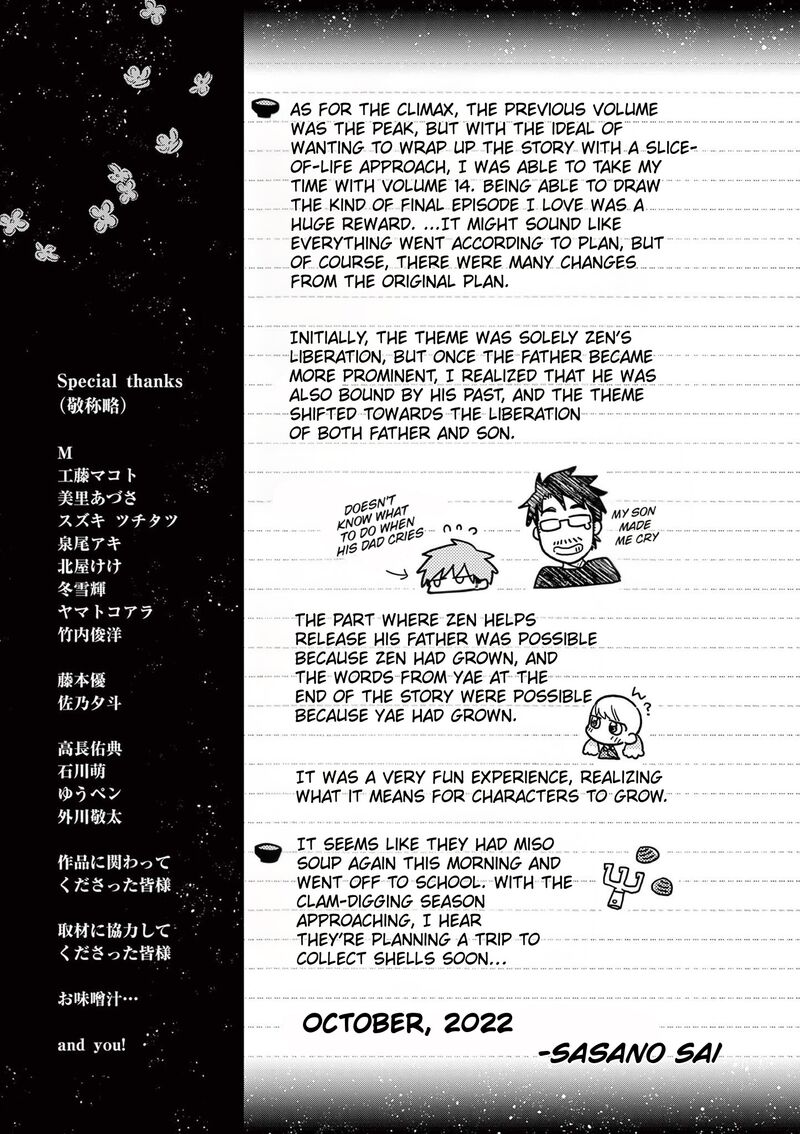 Special thanks
（敬称略）
M
工藤マコト
美里あづさ
スズキ ツチタツ
泉尾アキ
北屋けけ
冬雪輝
ヤマトコアラ
竹内俊洋
藤本優
佐乃夕斗
高長佑典
石川萌
ゆうペン
外川敬太
作品に関わって
くださった皆様
取材に協力して
くださった皆様
お味噌汁…
and you!
AS FOR THE CLIMAX, THE PREVIOUS VOLUME
WAS THE PEAK, BUT WITH THE IDEAL OF
WANTING TO WRAP UP THE STORY WITH A SLICE-
OF-LIFE APPROACH, I WAS ABLE TO TAKE MY
TIME WITH VOLUME 14. BEING ABLE TO DRAW
THE KIND OF FINAL EPISODE I LOVE WAS A
HUGE REWARD. ...IT MIGHT SOUND LIKE
EVERYTHING WENT ACCORDING TO PLAN, BUT
OF COURSE, THERE WERE MANY CHANGES
FROM THE ORIGINAL PLAN.
INITIALLY, THE THEME WAS SOLELY ZEN'S
LIBERATION, BUT ONCE THE FATHER BECAME
MORE PROMINENT, I REALIZED THAT HE WAS
ALSO BOUND BY HIS PAST, AND THE THEME
SHIFTED TOWARDS THE LIBERATION
OF BOTH FATHER AND SON.
DOESN'T
KNOW WHAT
TO DO WHEN
HIS DAD CRIES
MY SON
MADE
ME CRY
THE PART WHERE ZEN HELPS
RELEASE HIS FATHER WAS POSSIBLE
BECAUSE ZEN HAD GROWN, AND
THE WORDS FROM YAE AT THE
END OF THE STORY WERE POSSIBLE
BECAUSE YAE HAD GROWN.
ん?
IT WAS A VERY FUN EXPERIENCE, REALIZING
WHAT IT MEANS FOR CHARACTERS TO GROW.
IT SEEMS LIKE THEY HAD MISO
SOUP AGAIN THIS MORNING AND
WENT OFF TO SCHOOL. WITH THE
CLAM-DIGGING SEASON
APPROACHING, I HEAR
THEY'RE PLANNING A TRIP TO
COLLECT SHELLS SOON...
OCTOBER, 2022
-SASANO SAI